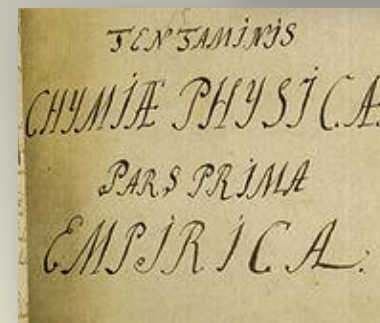 TENTAMINIS
CHYMIÆ PHYSICA
PARS PRIMA
EMPIRICA.